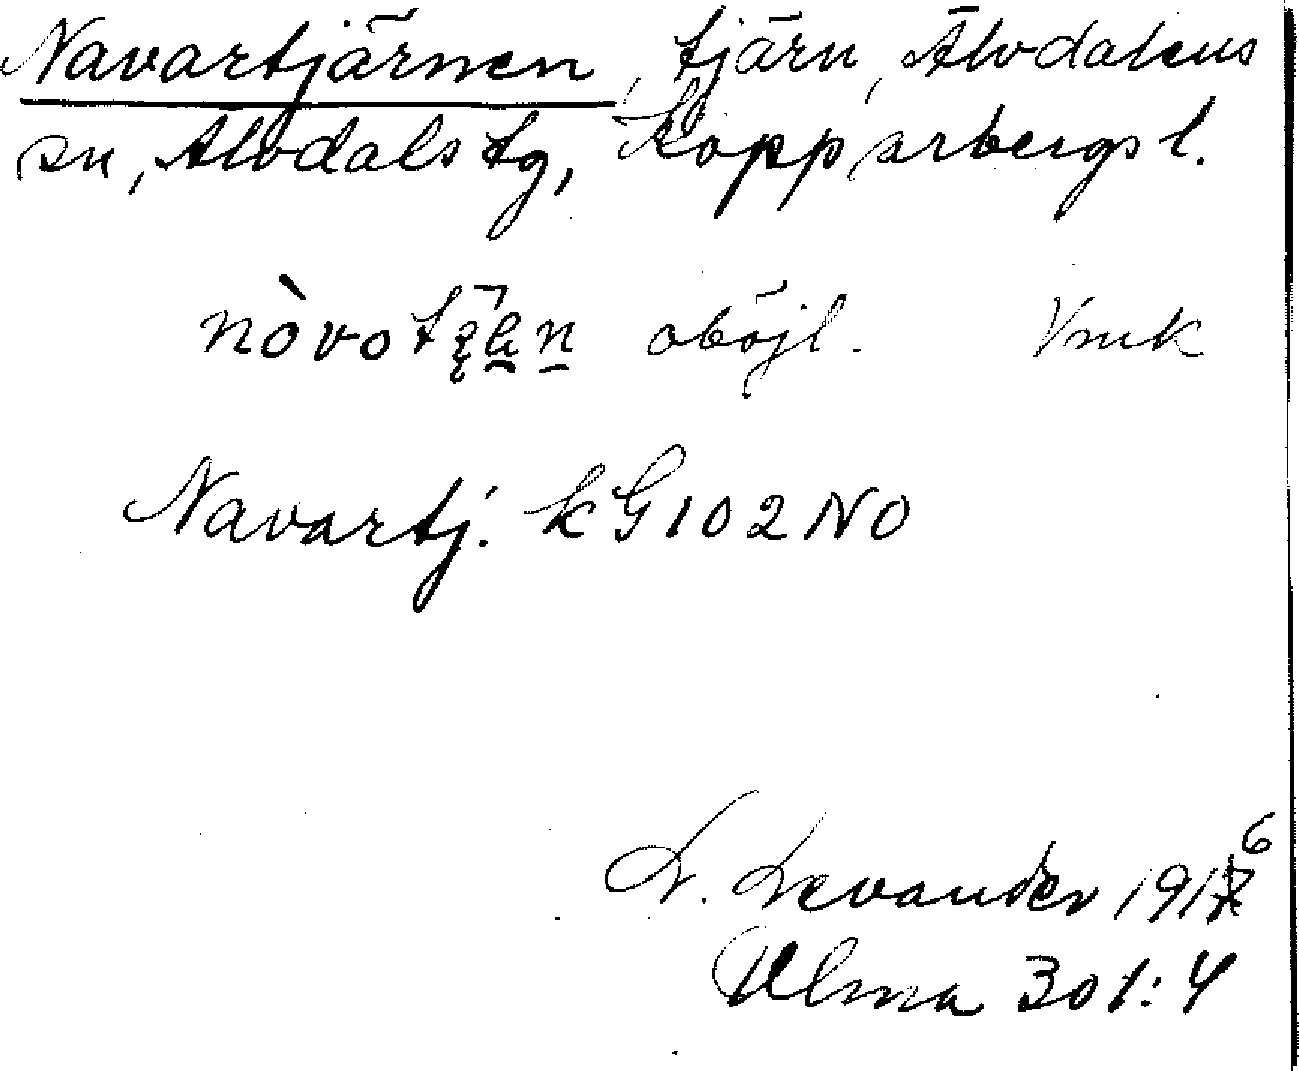 Navartjärnen, tjärn, Älvdalens
sn, Älvdals tg, Kopparbergs l.
oböjl. Vmk
Navartj. kG102NO
L. Levander 1916
Ulma 301:4